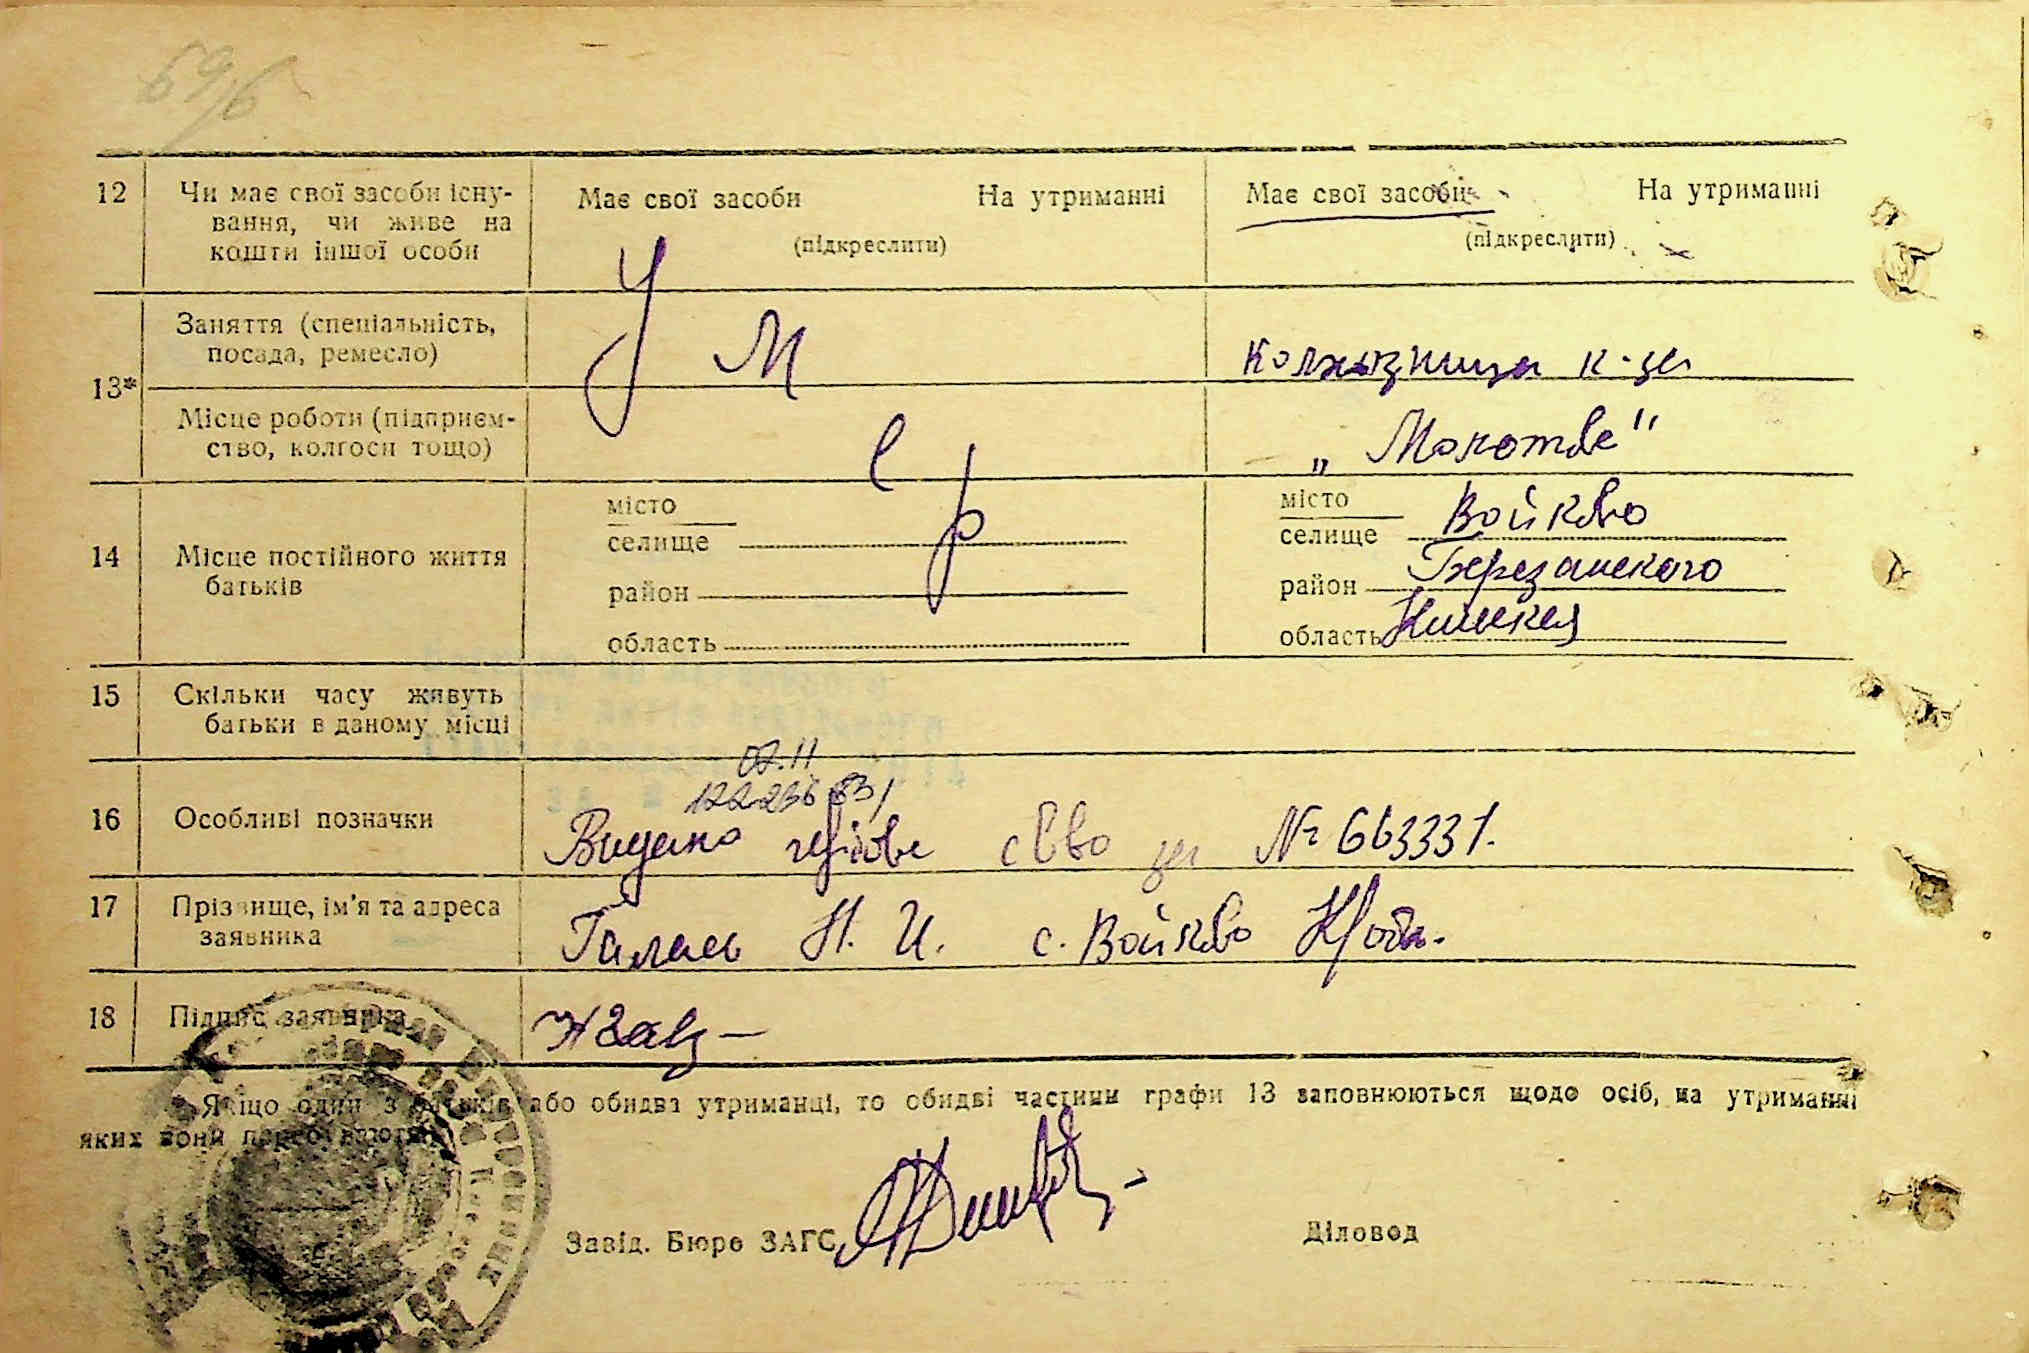 69/6
12 Чи має свої засоби існу- Має свої засоби На утриманні Має свої засоби На утриманні
вання, чи живе на (підкреслити) (підкреслити)
кошти іншої особи
Умер
Заняття (спеціальність,
посада, ремесло) колхозница к-за
13*
Місце роботи (підприєм- „Молотова"
ство, колгосп тощо)
місто місто Войково
селище селище
14 Місце постійного життя район район Березанского
батьків область область Киевская
15 Скільки часу живуть
батьки в даному місці
02.11
16 Особливі позначки Видано св во за № 663331.
17 Прізвище, ім'я та адреса
заявника Н. И. с. Войково
18 Підпис заявника
* Якщо один з батьків або обидва утриманці, то обидві частини графи 13 заповнюються щодо осіб, на утриманні
яких вони перебувають.
Завід. Бюро ЗАГС Діловод